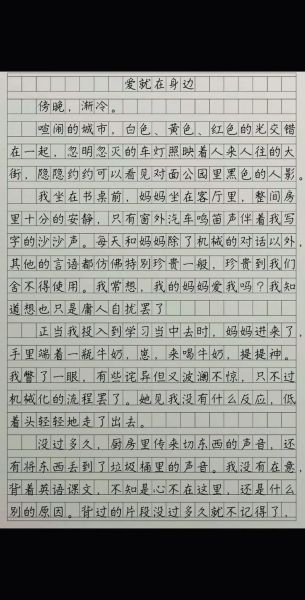 爱就在身边
傍晚，渐冷。
喧闹的城市，白色、黄色、红色的光交错
在一起，忽明忽灭的车灯照映着人来人往的大
街，隐隐约约可以看见对面公园里黑色的人影。
我坐在书桌前，妈妈坐在客厅里，整间房
里十分的安静，只有窗外汽车鸣笛声伴着我写
字的沙沙声。每天和妈妈除了机械的对话以外，
其他的言语都仿佛特别珍贵一般，珍贵到我们
舍不得使用。我常想，我的妈妈爱我吗？我知
道想也只是庸人自扰罢了
正当我投入到学习当中去时，妈妈进来了，
手里端着一瓶牛奶，崽，来喝牛奶，提提神。
我瞥了一眼，有些诧异但又波澜不惊，只不过
机械化的流程罢了。她见我没有什么反应，低
着头轻轻地走了出去。
没过多久，厨房里传来切东西的声音，还
有将东西丢到了垃圾桶里的声音。我没有在意，
背着英语课文，不知是心不在这里，还是什么
别的原因。背过的片段没过多久就不记得了，